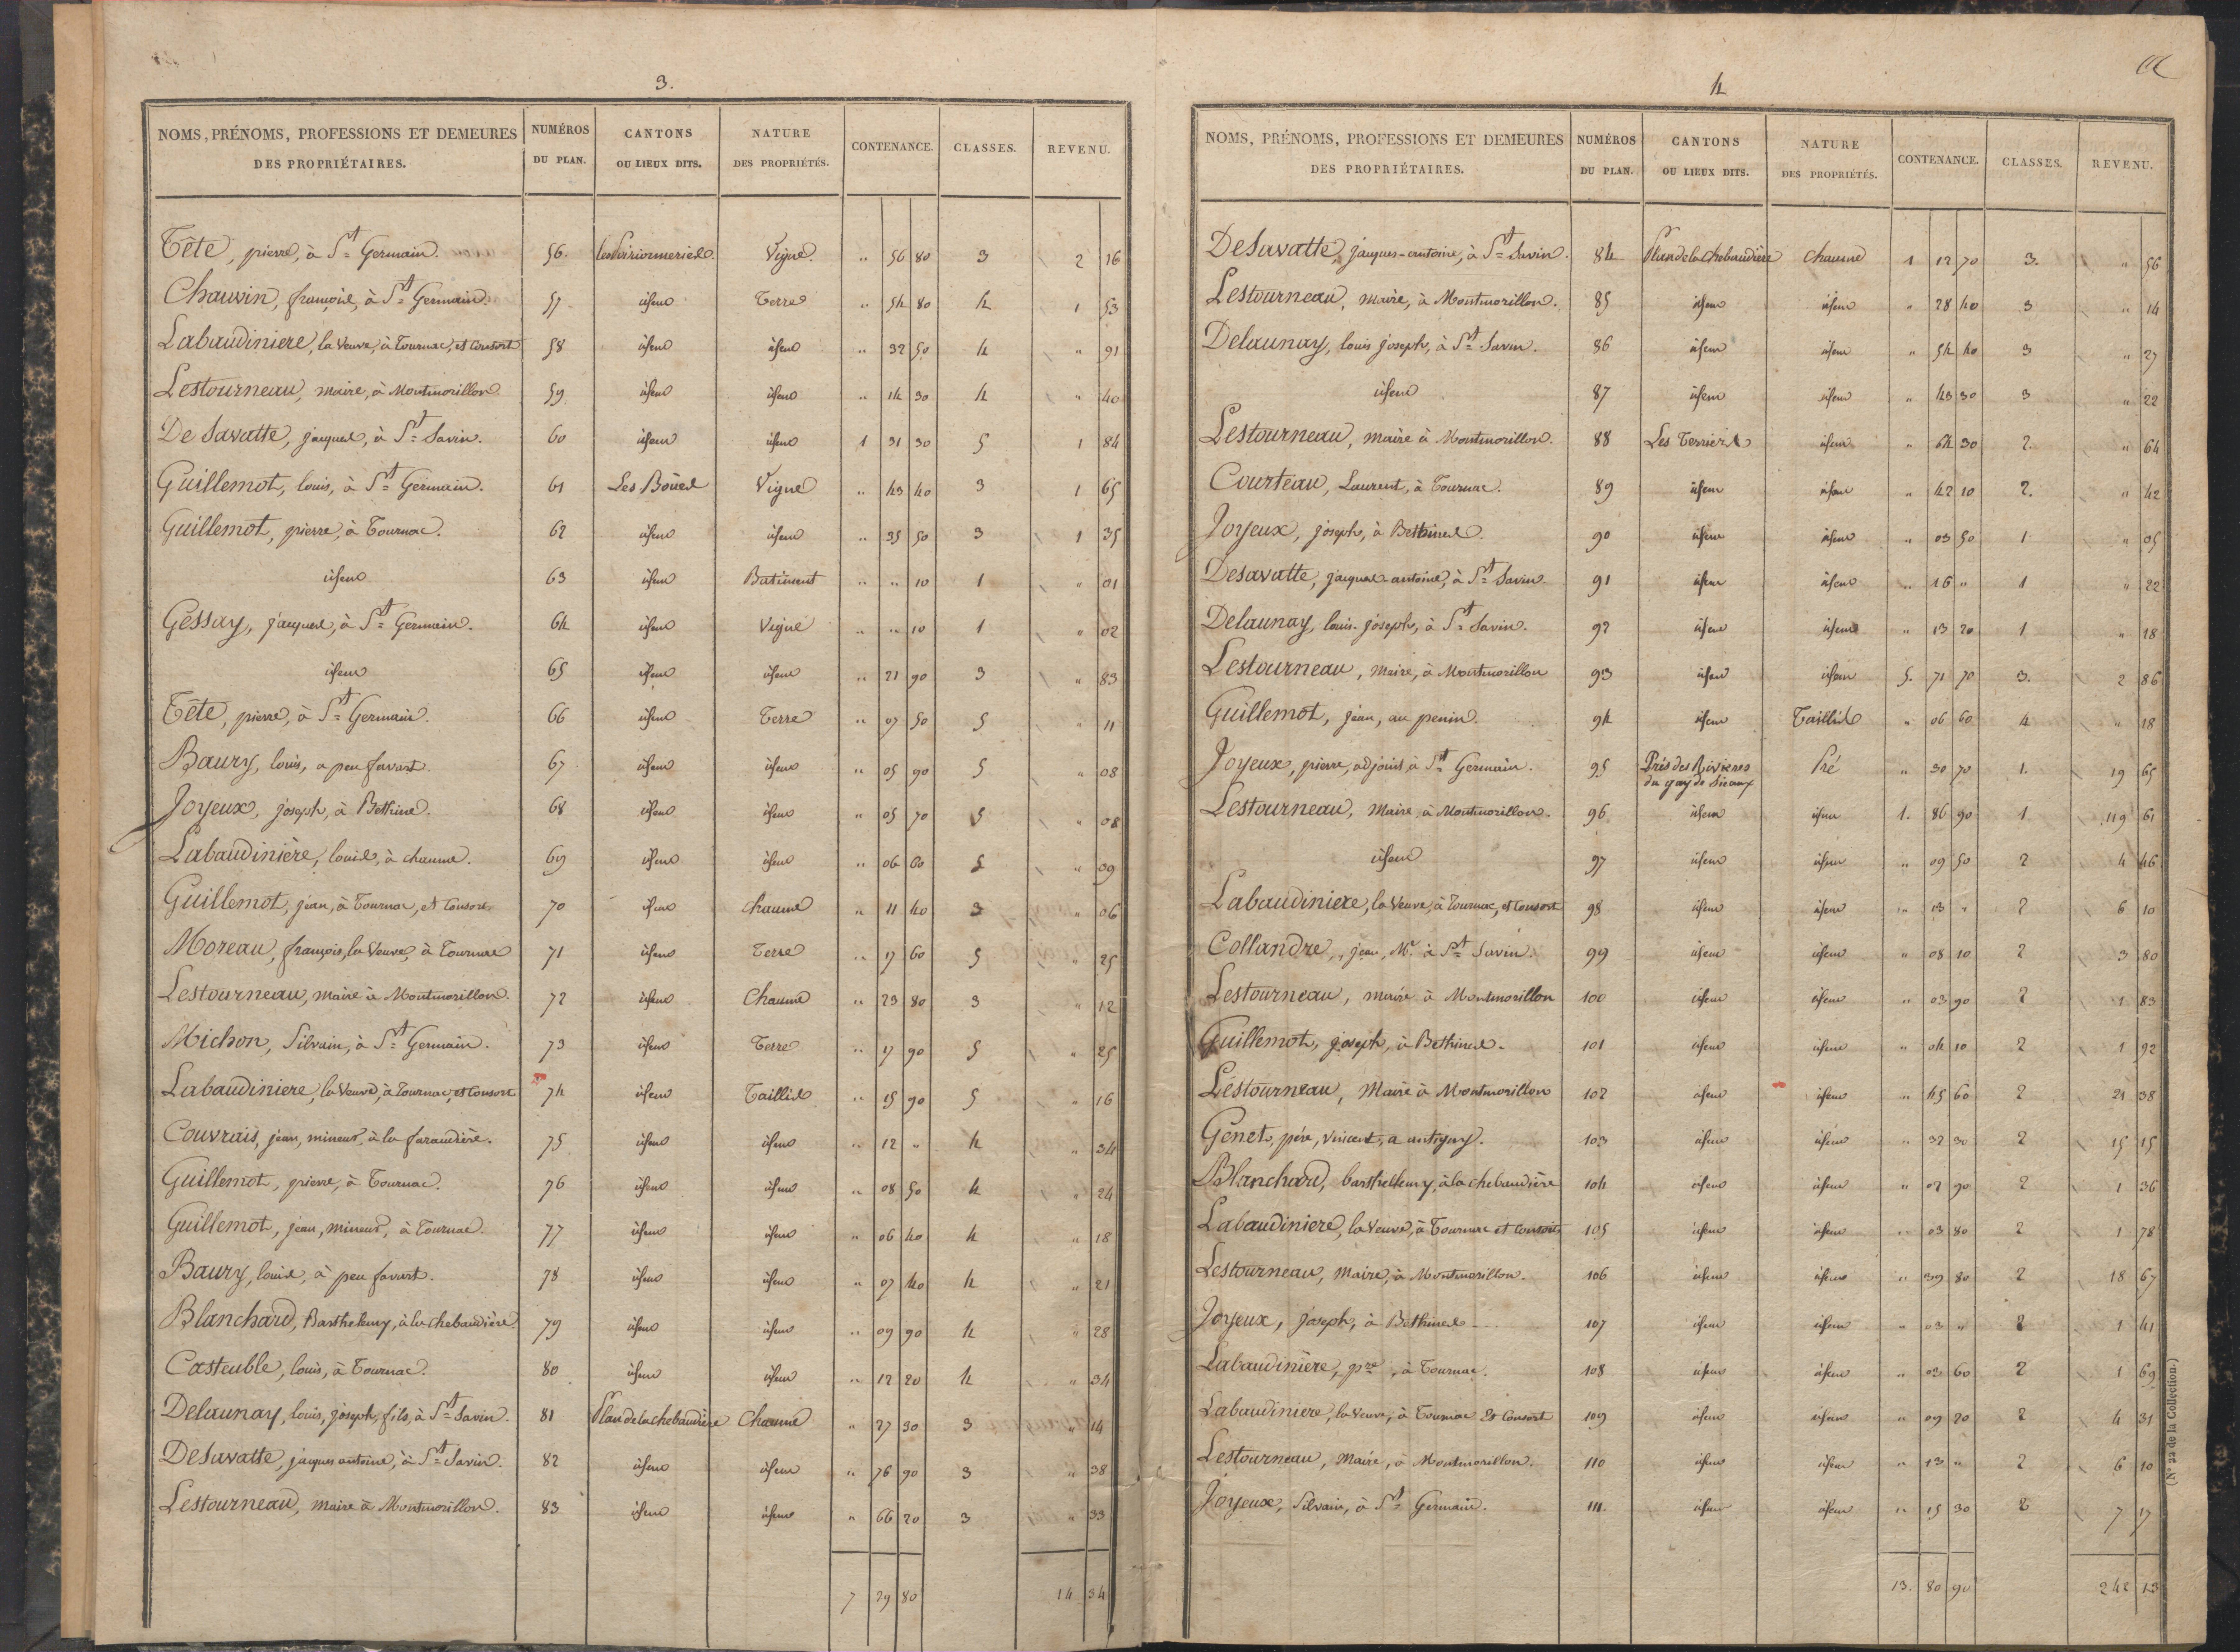 3.
NOMS, PRÉNOMS, PROFESSIONS ET DEMEURES DES PROPRIÉTAIRES. NUMÉROS DU PLAN. CANTONS OU LIEUX DITS. NATURE DES PROPRIÉTÉS. CONTENANCE. CLASSES. REVENU.
Tête, pierre, à St Germain. 56 Vigne. " 56 80 3 2 16
Chauvin, françois, à St Germain. 57 idem Terre " 54 80 4 1 53
Labaudiniere, la veuve, à Tournac, et Consort 58 idem idem " 32 50 4 " 91
Lestourneau, maire, à Montmorillon. 59 idem idem " 14 30 4 " 40
De Savatte, jacques, à St Savin. 60 idem idem 1 31 30 5 1 84
Guillemot, louis, à St Germain. 61 Les Boües Vigne " 43 40 3 1 65
Guillemot, pierre, à Tournac. 62 idem idem " 35 50 3 1 35
idem 63 idem Batiment " " 10 1 " 01
Gessay, jacques, à St Germain. 64 idem Vigne " " 10 1 " 02
idem 65 idem idem " 21 90 3 " 83
Tête, pierre, à St Germain. 66 idem Terre " 07 50 5 " 11
Baury, louis, a peu favart. 67 idem idem " 05 90 5 " 08
Joyeux, joseph, à Bethines. 68 idem idem " 05 70 5 " 08
Labaudinière, louis, à chaume. 69 idem idem " 06 60 5 " 09
Guillemot, jean, à Tournac, et Consort. 70 idem Chaume " 11 40 3 " 06
Moreau, françois, la veuve, à Tournac 71 idem Terre " 17 60 5 " 25
Lestourneau, maire à Montmorillon. 72 idem Chaume " 23 80 3 " 12
Michon, Silvain, à St Germain. 73 idem Terre " 17 90 5 " 25
Labaudiniere, la veuve, à Tournac, et Consort 74 idem Taillis " 15 90 5 " 16
Couvrais, jean, mineur, à la faraudière. 75 idem idem " 12 " 4 " 34
Guillemot, pierre, à Tournac. 76 idem idem " 08 50 4 " 24
Guillemot, jean, mineur, à Tournac. 77 idem idem " 06 40 4 " 18
Baury, louis, à peu favart. 78 idem idem " 07 40 4 " 21
Blanchard, Barthelemy, à la chebaudière 79 idem idem " 09 90 4 " 28
Casteuble, louis, à Tournac. 80 idem idem " 12 20 4 " 34
Delaunay, louis, joseph, fils, à St Savin. 81 Plan de la chebaudière Chaume " 27 30 3 " 14
DeSavatte, jacques antoine, à St Savin. 82 idem idem " 76 90 3 " 38
Lestourneau, maire à Montmorillon. 83 idem idem " 66 20 3 " 33
7 29 80 14 34
4
NOMS, PRÉNOMS, PROFESSIONS ET DEMEURES DES PROPRIÉTAIRES. NUMÉROS DU PLAN. CANTONS OU LIEUX DITS. NATURE DES PROPRIÉTÉS. CONTENANCE. CLASSES. REVENU.
DeSavatte, jacques-antoine, à St Savin. 84 Plan de la Chebaudière Chaume 1 12 70 3. " 56
Lestourneau, maire, à Montmorillon. 85 idem idem " 28 40 3 " 14
Delaunay, louis joseph, à St Savin. 86 idem idem " 54 40 3 " 27
idem 87 idem idem " 43 30 3 " 22
Lestourneau, maire à Montmorillon. 88 Les Terriers idem " 64 30 2. " 64
Courteau, Laurent, à Tournac. 89 idem idem " 42 10 2. " 42
Joyeux, joseph, à Bethines. 90 idem idem " 03 50 1 " 05
Desavatte, jacques-antoine, à St Savin. 91 idem idem " 16 " 1 " 22
Delaunay, louis-joseph, à St Savin. 92 idem idem " 13 20 1 " 18
Lestourneau, maire, à Montmorillon 93 idem idem 5. 71 70 3. 2 86
Guillemot, jean, au penin. 94 idem Taillis " 06 60 4 " 18
Joyeux, pierre, adjoint, à St Germain. 95 Près des Rivieres du Pré " 30 70 1. 19 65
Lestourneau, Maire, à Montmorillon. 96 idem idem 1. 86 90 1 119 61
idem 97 idem idem " 09 50 2 4 46
Labaudiniere, la veuve, à Tournac, et Consort 98 idem idem " 13 " 2 6 10
Collandre, jean, Mr. à St Savin. 99 idem idem " 08 10 2 3 80
Lestourneau, maire à Montmorillon 100 idem idem " 03 90 2 1 83
Guillemot, joseph, à Bethines. 101 idem idem " 04 10 2 1 92
Lestourneau, Maire à Montmorillon 102 idem idem " 45 60 2 21 38
Genet, père, Vincent, a antigny. 103 idem idem " 32 30 2 15 15
Blanchard, barthellemy, à la chebaudière 104 idem idem " 02 90 2 1 36
Labaudiniere, la veuve, à Tournac et Consort 105 idem idem " 03 80 2 1 78
Lestourneau, Maire, à Montmorillon. 106 idem idem " 39 80 2 18 67
Joyeux, joseph, à Bethines 107 idem idem " 03 " 2 1 41
Labaudinière, pre, à Tournac. 108 idem idem " 03 60 2 1 69
Labaudiniere, la veuve, à Tournac Et Consort 109 idem idem " 09 20 2 4 31
Lestourneau, Maire, à Montmorillon. 110 idem idem " 13 " 2 6 10
Joyeux, Silvain, à St Germain. 111. idem idem " 15 30 2 7 17
13. 80 90 242 13
(N° 22 de la Collection.)